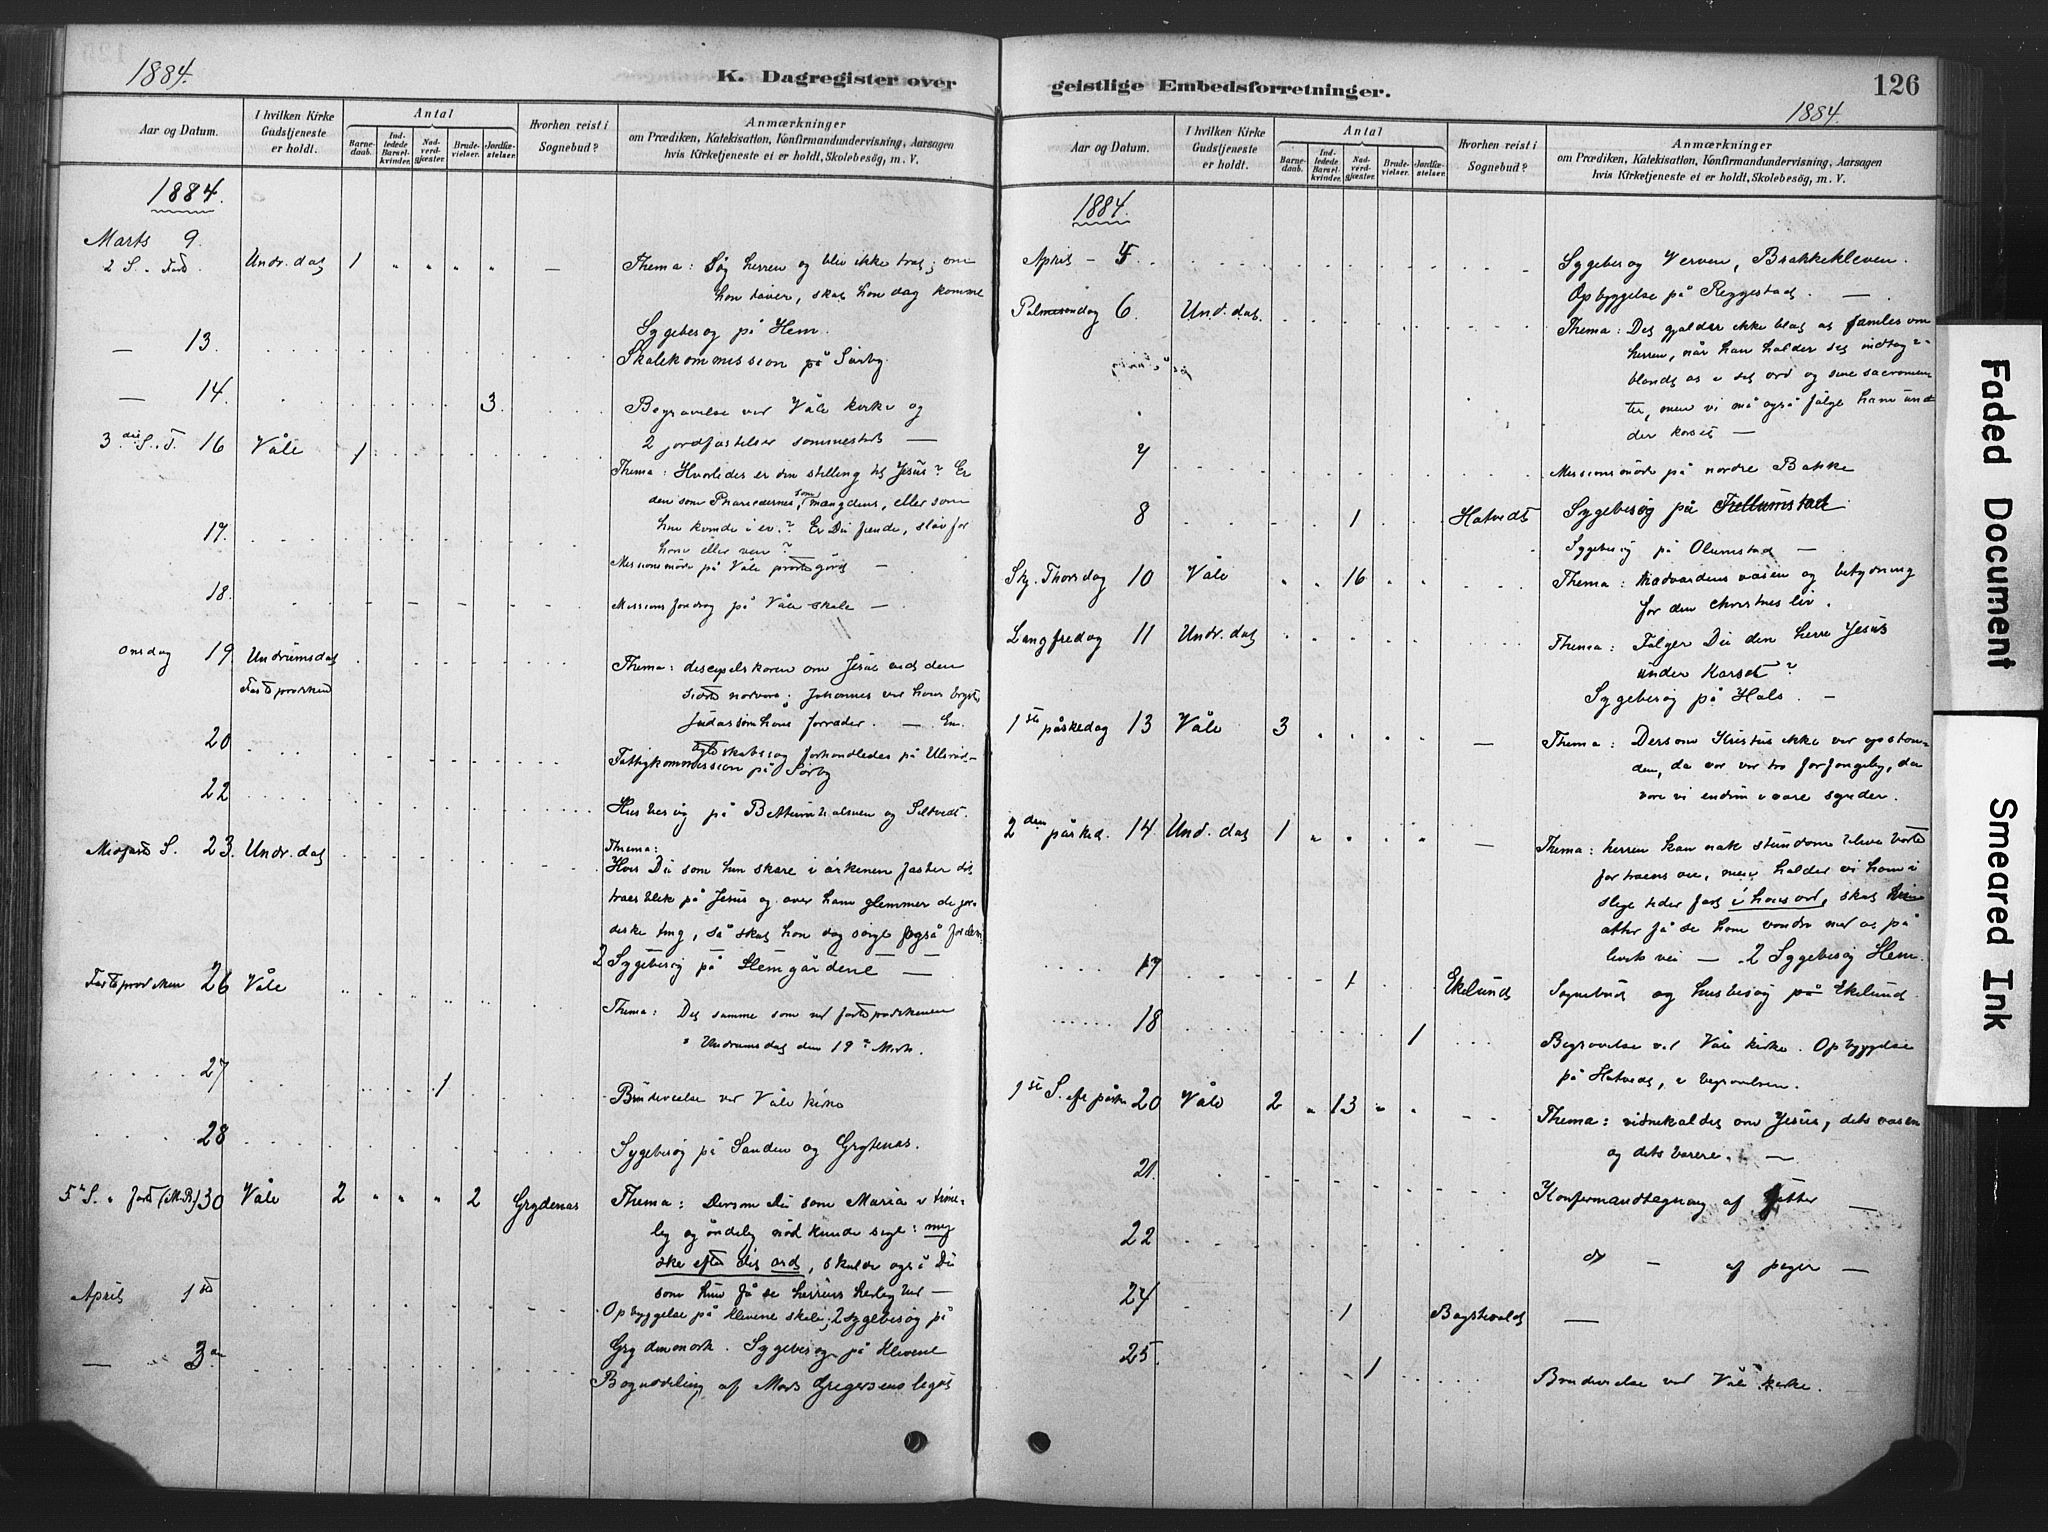 1884.
K. Dagregister over
Aar og Datum.
I hvilken Kirke Gudstjeneste er holdt.
Antal
Barnedaab.
Indledede Barselkvinder.
Nadverdgjæster.
Brudevielser.
Jordfæstelser.
Hvorhen reist i Sognebud?
Anmærkninger
om Prædiken, Katekisation, Konfirmandundervisning, Aarsagen
hvis Kirketjeneste ei er holdt, Skolebesøg, m. V.
1884.
Marts 9.
2 S. i Fast. Undr.dal 1 " " " " — Thema: Søg herren og bliv ikke træt; om
han døver, skal han dog komme
— 13. Sygebesøg på Hem.
Skolekommission på Sørby.
— 14. 3 Begravelse ved Våle kirke og
2 jordfæstelser sammesteds —
3die S. i F. 16 Våle 1 Thema: Hvorledes er din stilling til Jesus? Er
den som Phariseernes, som mængdens, eller som
hin kvinde i ev.? Er Du fiende, sløv for
ham eller ven?
17. Missionsmøde på Våle prestegård —
18. Missionsforedrag på Våle skole —
Onsdag 19 Undrumsdal
Fasteprædiken
Thema: discipelskaren om Jesus ved den
sidste nadvere: Johannes var hans
Judas som hans forræder. —
20 forhandledes på
Fattigkommission på Sørby
22 Husbesøg på og
Midfaste S. 23. Undr.dal Thema:
Hvis Du som hin skare i ørkenen fæster dit
troes blik på Jesus og over ham glemmer de jor-
diske ting, så skal han dog sørge også for dem.
2 Sygebesøg på Hemgårdene —
Fasteprædiken 26 Våle
Thema: Det samme som ved fasteprædikenen
i Undrumsdal den 19de Marts.
27 1 Brudevielse ved Våle kirke
28 Sygebesøg på Sanden og Grytenæs.
5te S. i faste (M.B.) 30 Våle 2 " " " 2 Grydenæs Thema: Dersom Du som Maria i time-
lig og åndelig nød kunde sige: mig
ske efter dit ord, skulde også Du
som hun få se herrens herlighed —
April 1ste Opbyggelse på Klevene skole; 2 sygebesøg på
— 3die Sygebesøg på Klevene
Boguddeling af Mads Gregersens legat
geistlige Embedsforretninger.
126
1884.
Aar og Datum.
I hvilken Kirke Gudstjeneste er holdt.
Antal
Barnedaab.
Indledede Barselkvinder.
Nadverdgjæster.
Brudevielser.
Jordfæstelser.
Hvorhen reist i Sognebud?
Anmærkninger
om Prædiken, Katekisation, Konfirmandundervisning, Aarsagen
hvis Kirketjeneste ei er holdt, Skolebesøg, m. V.
1884.
April — 4 Sygebesøg Verven, Brækkekleven.
Opbyggelse på Reggestad. —
Palmesøndag 6. Und.dal. Thema: Det gjælder ikke blot at samles om
herren, når han holder sit indtog i-
blandt os i sit ord og sine sacramen-
ter, men vi må også følge ham un-
der korset —
7 Missionsmøde på nordre Bakke
8 1 Hatvedt Sygebesøg på
Sygebesøg på Olumstad —
Skj. Thorsdag 10 Våle " " 16 " " Thema: Nadverdens væsen og betydning
for den christnes liv.
Langfredag 11 Undr.dal Thema: Følger Du den herre Jesus
under Korset?
Sygebesøg på Hals. —
1ste påskedag 13 Våle 3 — Thema: Dersom Kristus ikke var opstan-
den, da var vor tro forfængelig, da
vare vi endnu i vore synder.
2den påsked. 14 Und.dal 1 " " " " — Thema: herren kan nok stundom blive borte
for troens øie, men holder vi ham i
slige tider fast i hans ord, skal
atter få se ham vandre med os på
livets vei — 2 Sygebesøg Hem.
17 1 Ekelund Sognebud og husbesøg på Ekelund.
18 1 Begravelse ved Våle kirke. Opbyggelse
på Hatvedt, i begravelsen.
1ste S. eft påske 20 Våle 2 " 13 " " — Thema: vidnekaldet om Jesus, dets væsen
og dets bærere. —
21. Konfirmandtegning af gutter —
22 do — af piger —
24 1 —
25. 1 Brudevielse ved Våle kirke.
Faded Document
Smeared Ink